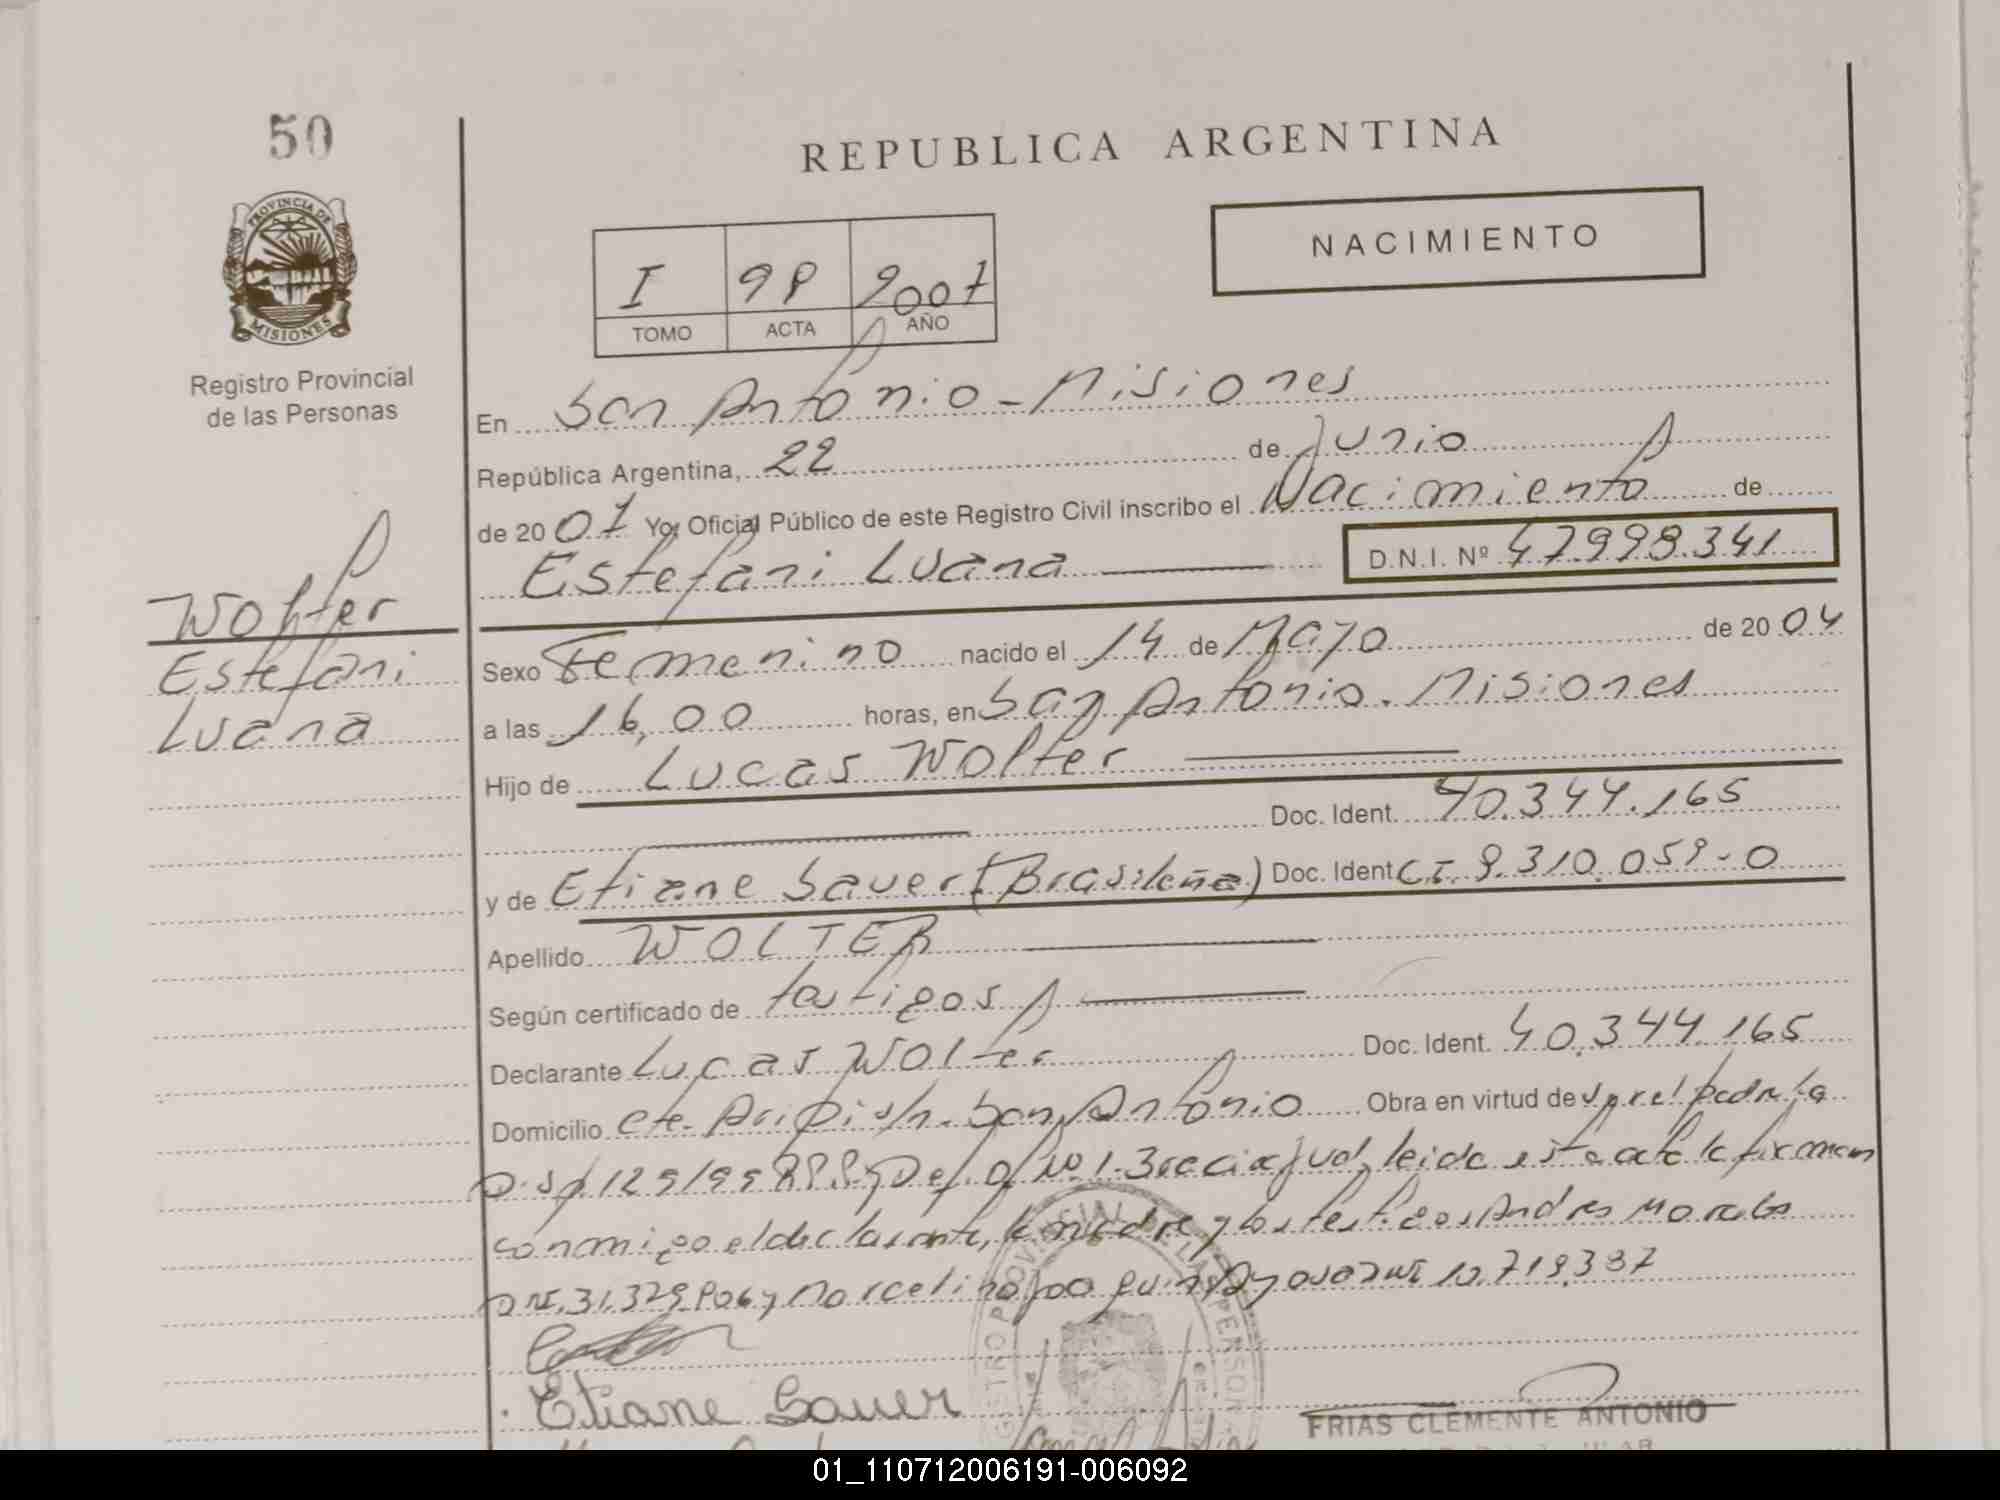 50
REPUBLICA ARGENTINA
PROVINCIA DE
MISIONES
Registro Provincial
de las Personas
NACIMIENTO
I 98 2007
TOMO ACTA AÑO
En San Antonio - Misiones
República Argentina, 22 de Junio
de 2007 Yo, Oficial Público de este Registro Civil inscribo el Nacimiento de
Estefani Luana D.N.I. Nº 47.998.341
Wolter
Estefani
Luana
Sexo Femenino nacido el 14 de Mayo de 2004
a las 16,00 horas, en San Antonio. Misiones
Hijo de Lucas Wolter
Doc. Ident. 40.344.165
y de Etiane Sauer (Brasileña) Doc. Ident CI. 9.310.059-0
Apellido WOLTER
Según certificado de testigos
Declarante Lucas Wolter Doc. Ident. 40.344.165
Domicilio Cte. s/n. San Antonio Obra en virtud de
Disp. 129/99 RPP y Def. Of. Nº 1. 3ra circ. jud, leida esta acta la firman
conmigo el declarante, la madre y los testigos Andres Morales
DNI. 31.329.806 y Marcelino DNI 12.719.387
Etiane Sauer
FRIAS CLEMENTE ANTONIO
01_110712006191-006092